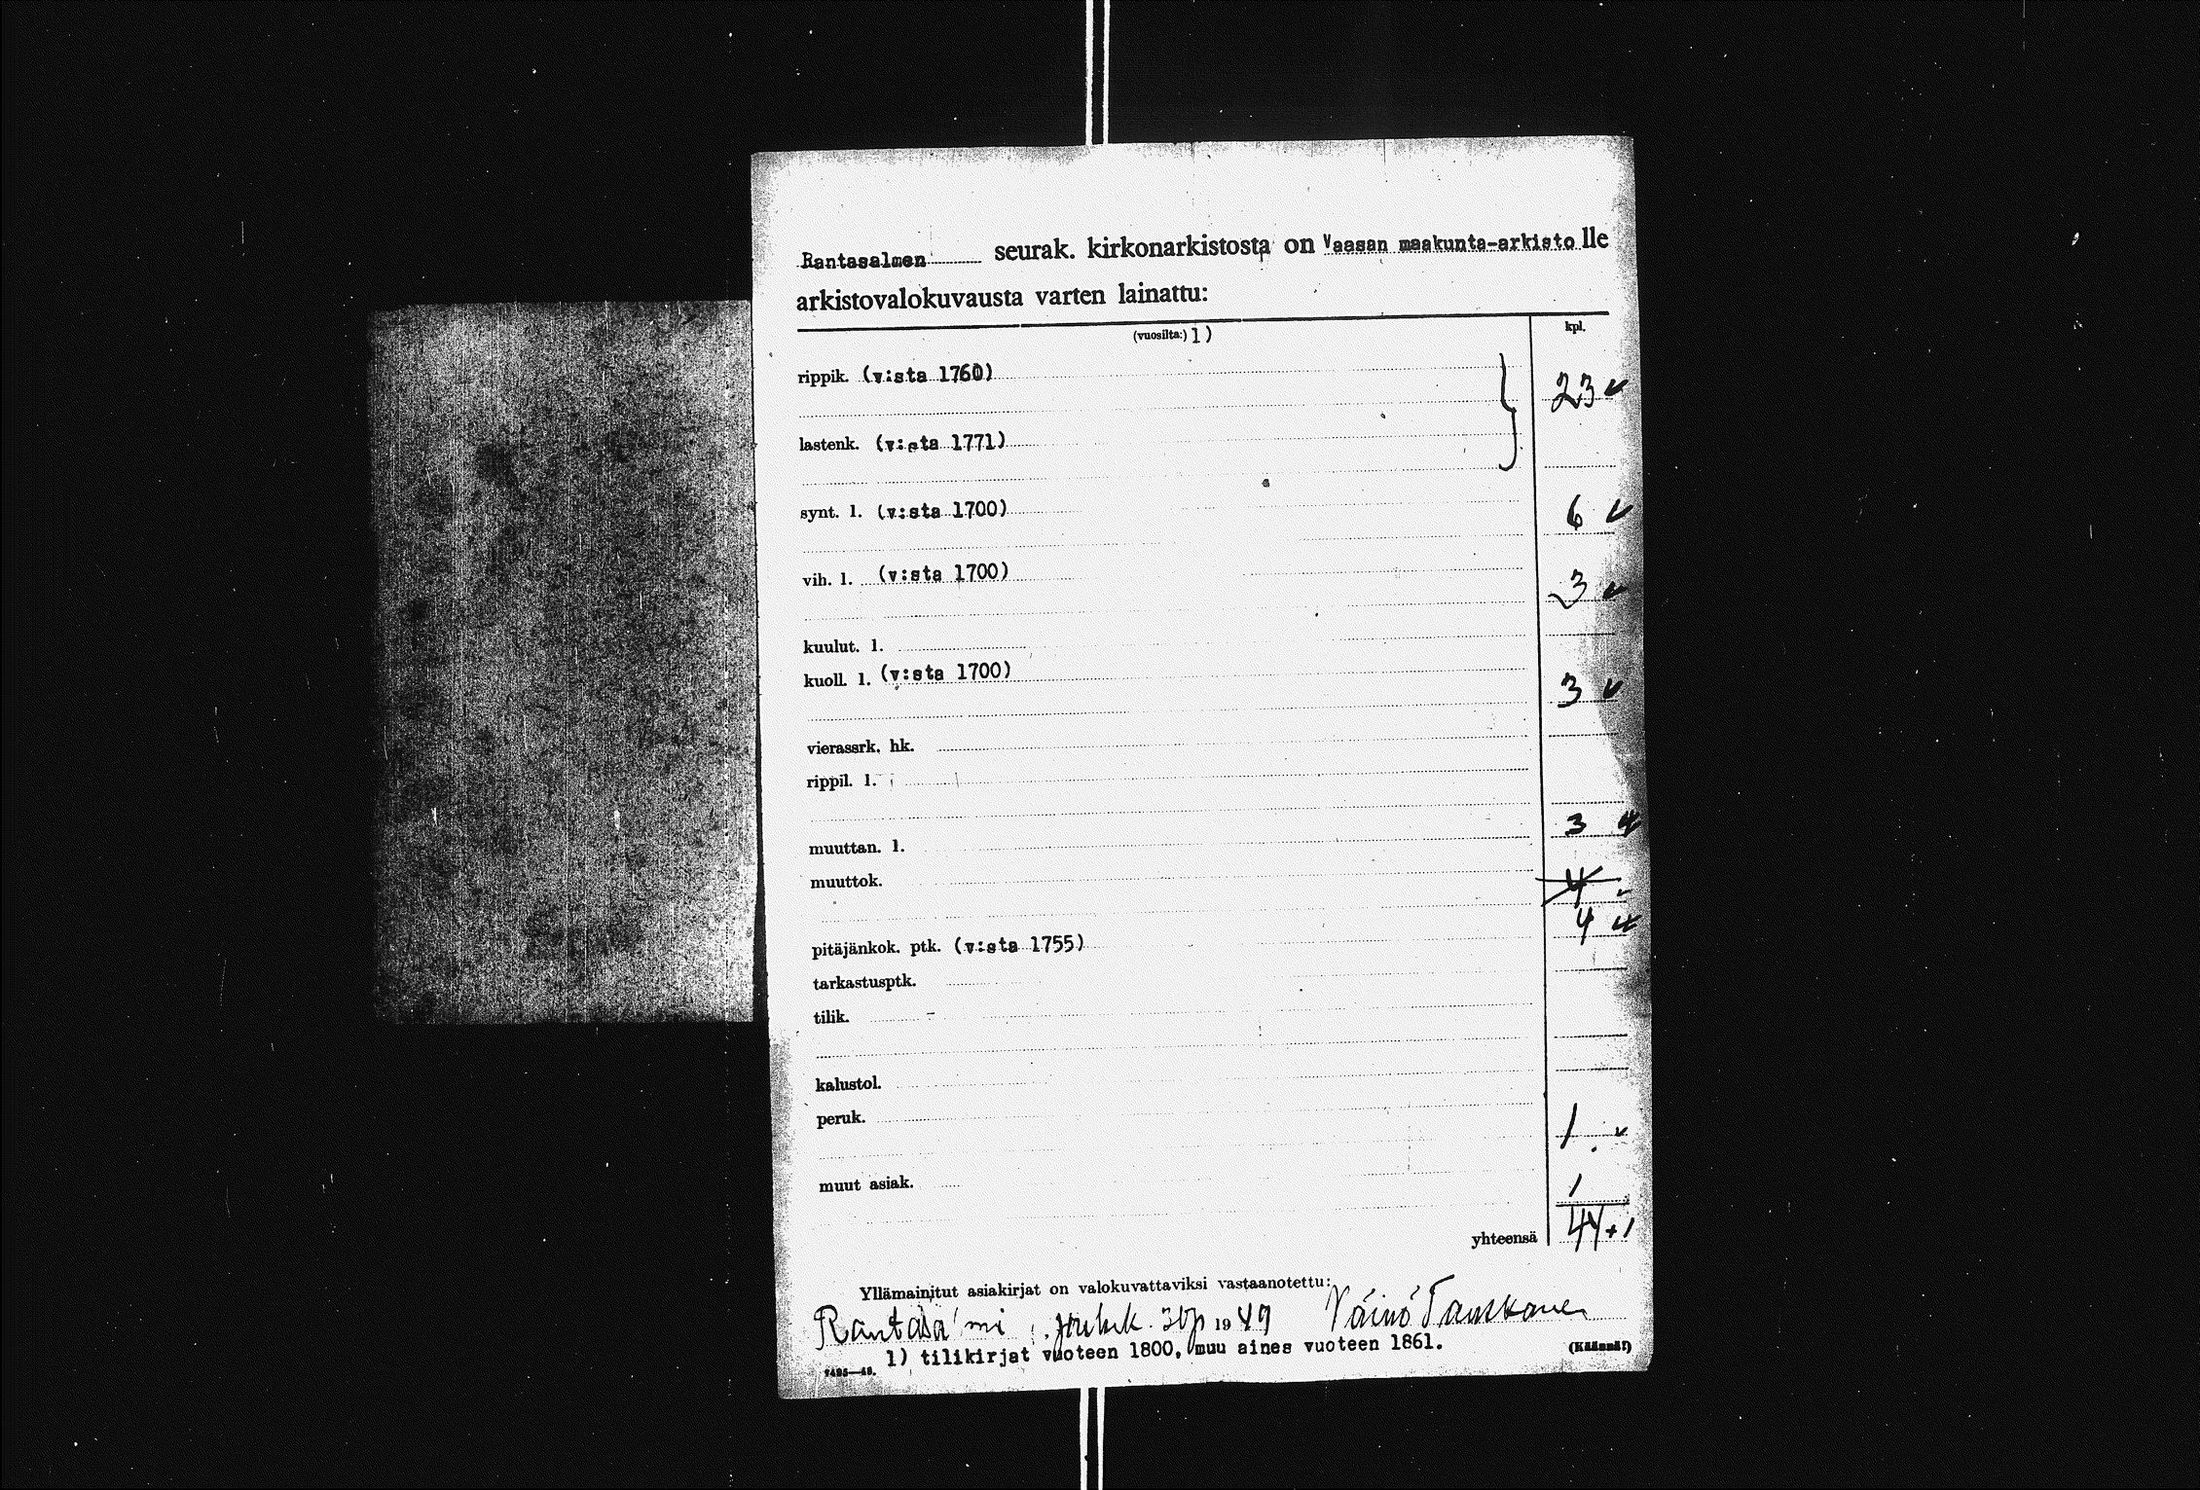 Rantasalmen seurak. kirkonarkistosta on Vaasan maakunta-arkisto lle
arkistovalokuvausta varten lainattu:
(vuosilta:) 1) kpl.
rippik. (v:sta 1760) 23 ✓
lastenk. (v:sta 1771)
synt. l. (v:sta 1700) 6 ✓
vih. l. (v:sta 1700) 3 ✓
kuulut. l.
kuoll. l. (v:sta 1700) 3 ✓
vierassrk. hk.
rippil. l.
muuttan. l. 3
muuttok. 4
pitäjänkok. ptk. (v:sta 1755) 4
tarkastusptk.
tilik.
kalustol.
peruk. 1 ✓
muut asiak. 1
yhteensä 44+1
Yllämainitut asiakirjat on valokuvattaviksi vastaanotettu:
19 49 Väinö Tanskanen
1) tilikirjat vuoteen 1800, muu aines vuoteen 1861.
(Käännä!)